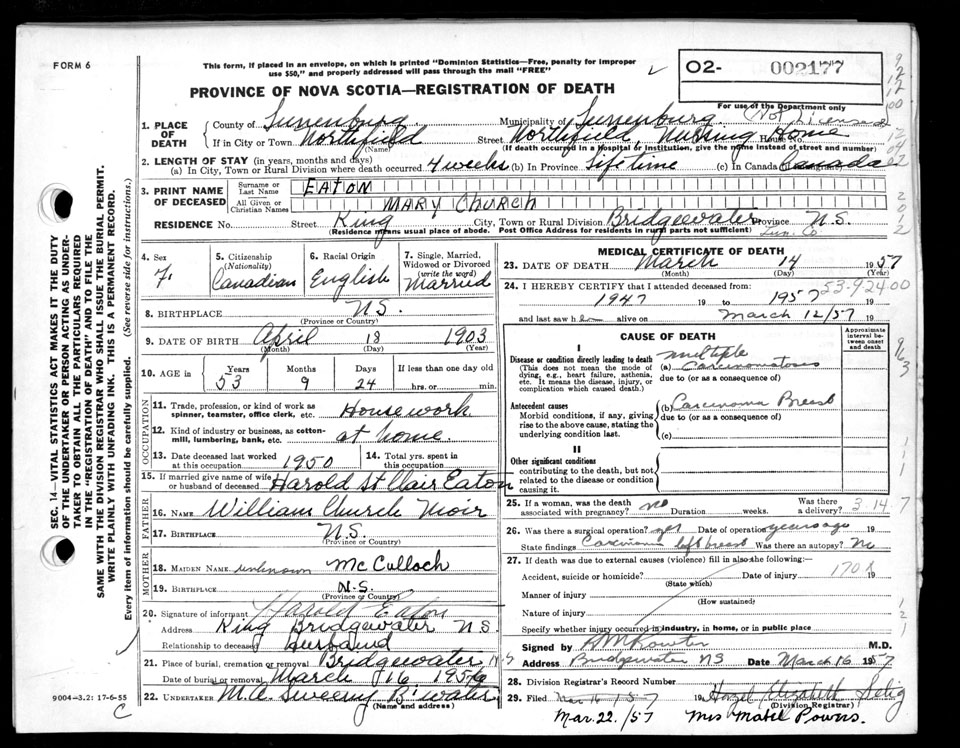 FORM 6
This form, if placed in an envelope, on which is printed "Dominion Statistics—Free, penalty for improper
use $50," and properly addressed will pass through the mail "FREE"
02- 002177
PROVINCE OF NOVA SCOTIA—REGISTRATION OF DEATH
For use of the Department only
1. PLACE OF DEATH
County of Lunenburg Municipality of Lunenburg (Not Licensed
If in City or Town Northfield Street Northfield Nursing Home House No.
(Name) (If death occurred in a Hospital or Institution, give the name instead of street and number)
2. LENGTH OF STAY (in years, months and days)
(a) In City, Town or Rural Division where death occurred 4 weeks (b) In Province Lifetime (c) In Canada (if immigrant) Canada
3. PRINT NAME OF DECEASED
Surname or Last Name EATON
All Given or Christian Names MARY CHURCH
RESIDENCE No. Street King City, Town or Rural Division Bridgewater Province N.S.
(Residence means usual place of abode. Post Office Address for residents in rural parts not sufficient) Lun. Co
4. Sex F.
5. Citizenship (Nationality) Canadian
6. Racial Origin English
7. Single, Married, Widowed or Divorced (write the word) Married
8. BIRTHPLACE N.S.
(Province or Country)
9. DATE OF BIRTH April 18 1903
(Month) (Day) (Year)
10. AGE in Years 53 Months 9 Days 24 If less than one day old hrs. or min.
OCCUPATION
11. Trade, profession, or kind of work as spinner, teamster, office clerk, etc. Housework
12. Kind of industry or business, as cotton-mill, lumbering, bank, etc. at home.
13. Date deceased last worked at this occupation 1950
14. Total yrs. spent in this occupation
15. If married give name of wife or husband of deceased Harold St Clair Eaton
FATHER
16. Name William Church Moir
17. Birthplace N.S.
(Province or Country)
MOTHER
18. Maiden Name unknown McCulloch
19. Birthplace N.S.
(Province or Country)
20. Signature of informant Harold Eaton
Address King Bridgewater N.S.
Relationship to deceased Husband
21. Place of burial, cremation or removal Bridgewater N.S
Date of burial or removal March 16 1956
22. Undertaker M.A. Sweeny B'water
(Name and address)
9004-3.2: 17-6-55
C
MEDICAL CERTIFICATE OF DEATH
23. DATE OF DEATH March 14 1957
(Month) (Day) (Year)
53-9-24.00
24. I HEREBY CERTIFY that I attended deceased from:
1947 19 to 1957 19
and last saw h alive on March 12/57 19
CAUSE OF DEATH
Approximate interval between onset and death
I
Disease or condition directly leading to death
(This does not mean the mode of dying, e.g., heart failure, asthenia, etc. It means the disease, injury, or complication which caused death.)
(a) multiple Carcinomatosis
due to (or as a consequence of)
Antecedent causes
Morbid conditions, if any, giving rise to the above cause, stating the underlying condition last.
(b) Carcinoma Breast
due to (or as a consequence of)
(c)
II
Other significant conditions
contributing to the death, but not related to the disease or condition causing it.
25. If a woman, was the death associated with pregnancy? no Duration weeks. Was there a delivery?
3 14 7
26. Was there a surgical operation? yes Date of operation years ago 19
State findings Carcinoma left breast Was there an autopsy? No
27. If death was due to external causes (violence) fill in also the following:
Accident, suicide or homicide? Date of injury 19
(State which)
170
Manner of injury
(How sustained)
Nature of injury
Specify whether injury occurred in industry, in home, or in public place
Signed by M.D.
Address Bridgewater NS Date March 16 1957
28. Division Registrar's Record Number
29. Filed Mar 16/57 19 Hazel Elizabeth Selig
(Division Registrar)
Mar. 22. /57 Mrs Mabel Powers.
SEC. 14—VITAL STATISTICS ACT MAKES IT THE DUTY
OF THE UNDERTAKER OR PERSON ACTING AS UNDER-
TAKER TO OBTAIN ALL THE PARTICULARS REQUIRED
IN THE "REGISTRATION OF DEATH" AND TO FILE THE
SAME WITH THE DIVISION REGISTRAR WHO SHALL ISSUE THE BURIAL PERMIT.
WRITE PLAINLY WITH UNFADING INK. THIS IS A PERMANENT RECORD.
Every item of information should be carefully supplied. (See reverse side for instructions.)